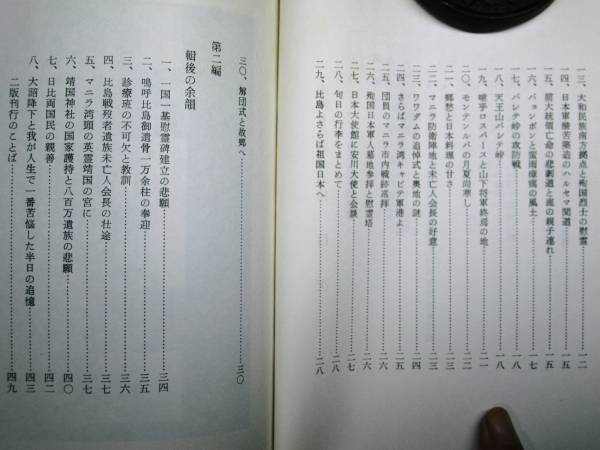 一三、大和民族南方拠点と殉国烈士の慰霊……一二
一四、日本軍酸苦築造のハルセマ閣道……一五
一五、前大統領亡命の悲劇道と鹿の親子連れ……一五
一六、バョンボンと蛮雨瘴癘の風土……一七
一七、バレテ峠の攻防戦……一八
一八、天王山バレテ峠……一八
一九、噫乎ロスバースと山下将軍終焉の地……二一
二〇、モンテンルパの月夏尚寒し……二二
二一、郷愁と日本料理の甘さ……二二
二二、マニラ防衛陣地と未亡人会長の好意……二三
二三、ワワダムの追悼式と奥地の謎……二四
二四、さらばマニラ湾キャビテ軍港よ……二五
二五、団員のマニラ市内戦跡巡拝……二六
二六、殉国日本軍人墓地参拝と慰霊塔……二六
二七、日本大使館に安川大使と会談……二七
二八、旬日の行事をまとめて……二八
二九、比島よさらば祖国日本へ……二八
三〇、解団式と故郷へ……三〇
第二編
輯後の余韻
一、一国一基慰霊碑建立の悲願……三四
二、嗚呼比島御遺骨一万余柱の奉迎……三五
三、診療班の不可欠と教訓……三六
四、比島戦歿者遺族未亡人会長の壮途……三七
五、マニラ湾頭の英霊靖国の宮に……三七
六、靖国神社の国家護持と八百万遺族の悲願……四〇
七、日比両国民の親善……四二
八、大詔降下と我が人生で一番苦悩した半日の追憶……四三
二版刊行のことば……四九